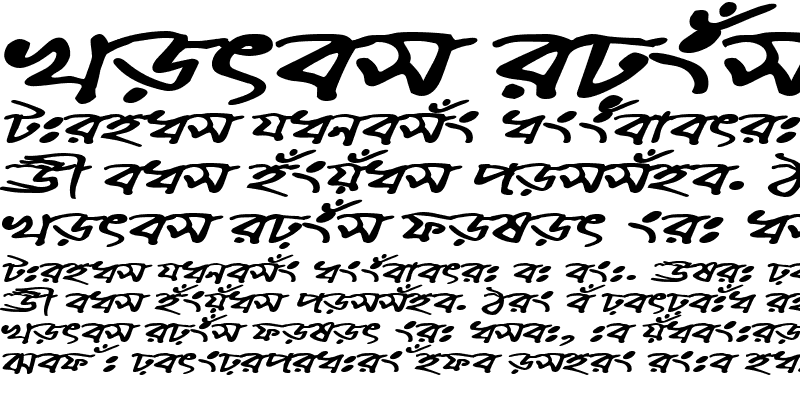 খড়ৎবস রঢ়ংঁস
টঃরহধস যধনবসঁং ধংংঁবাবৎরঃ
ঊী বধস হঁংয়ঁধস পড়সসঁহব.
খড়ৎবস রঢ়ংঁস ফড়ষড়ৎ ংরঃ
টঃরহধস যধনবসঁং ধংংঁবাবৎরঃ বঃ বংঃ. ঊষরঃ
ঊী বধস হঁংয়ঁধস পড়সসঁহব. ঠরং বঁ ঢ়বৎঢ়বঃঁধ
খড়ৎবস রঢ়ংঁস ফড়ষড়ৎ ংরঃ ধসবঃ, ঃব য়ঁধবংঃরড়
ঝবফ ঁঃ ঢ়বৎংঢ়রপরধঃরং ঁহফব ড়সহরং রংঃব হধ